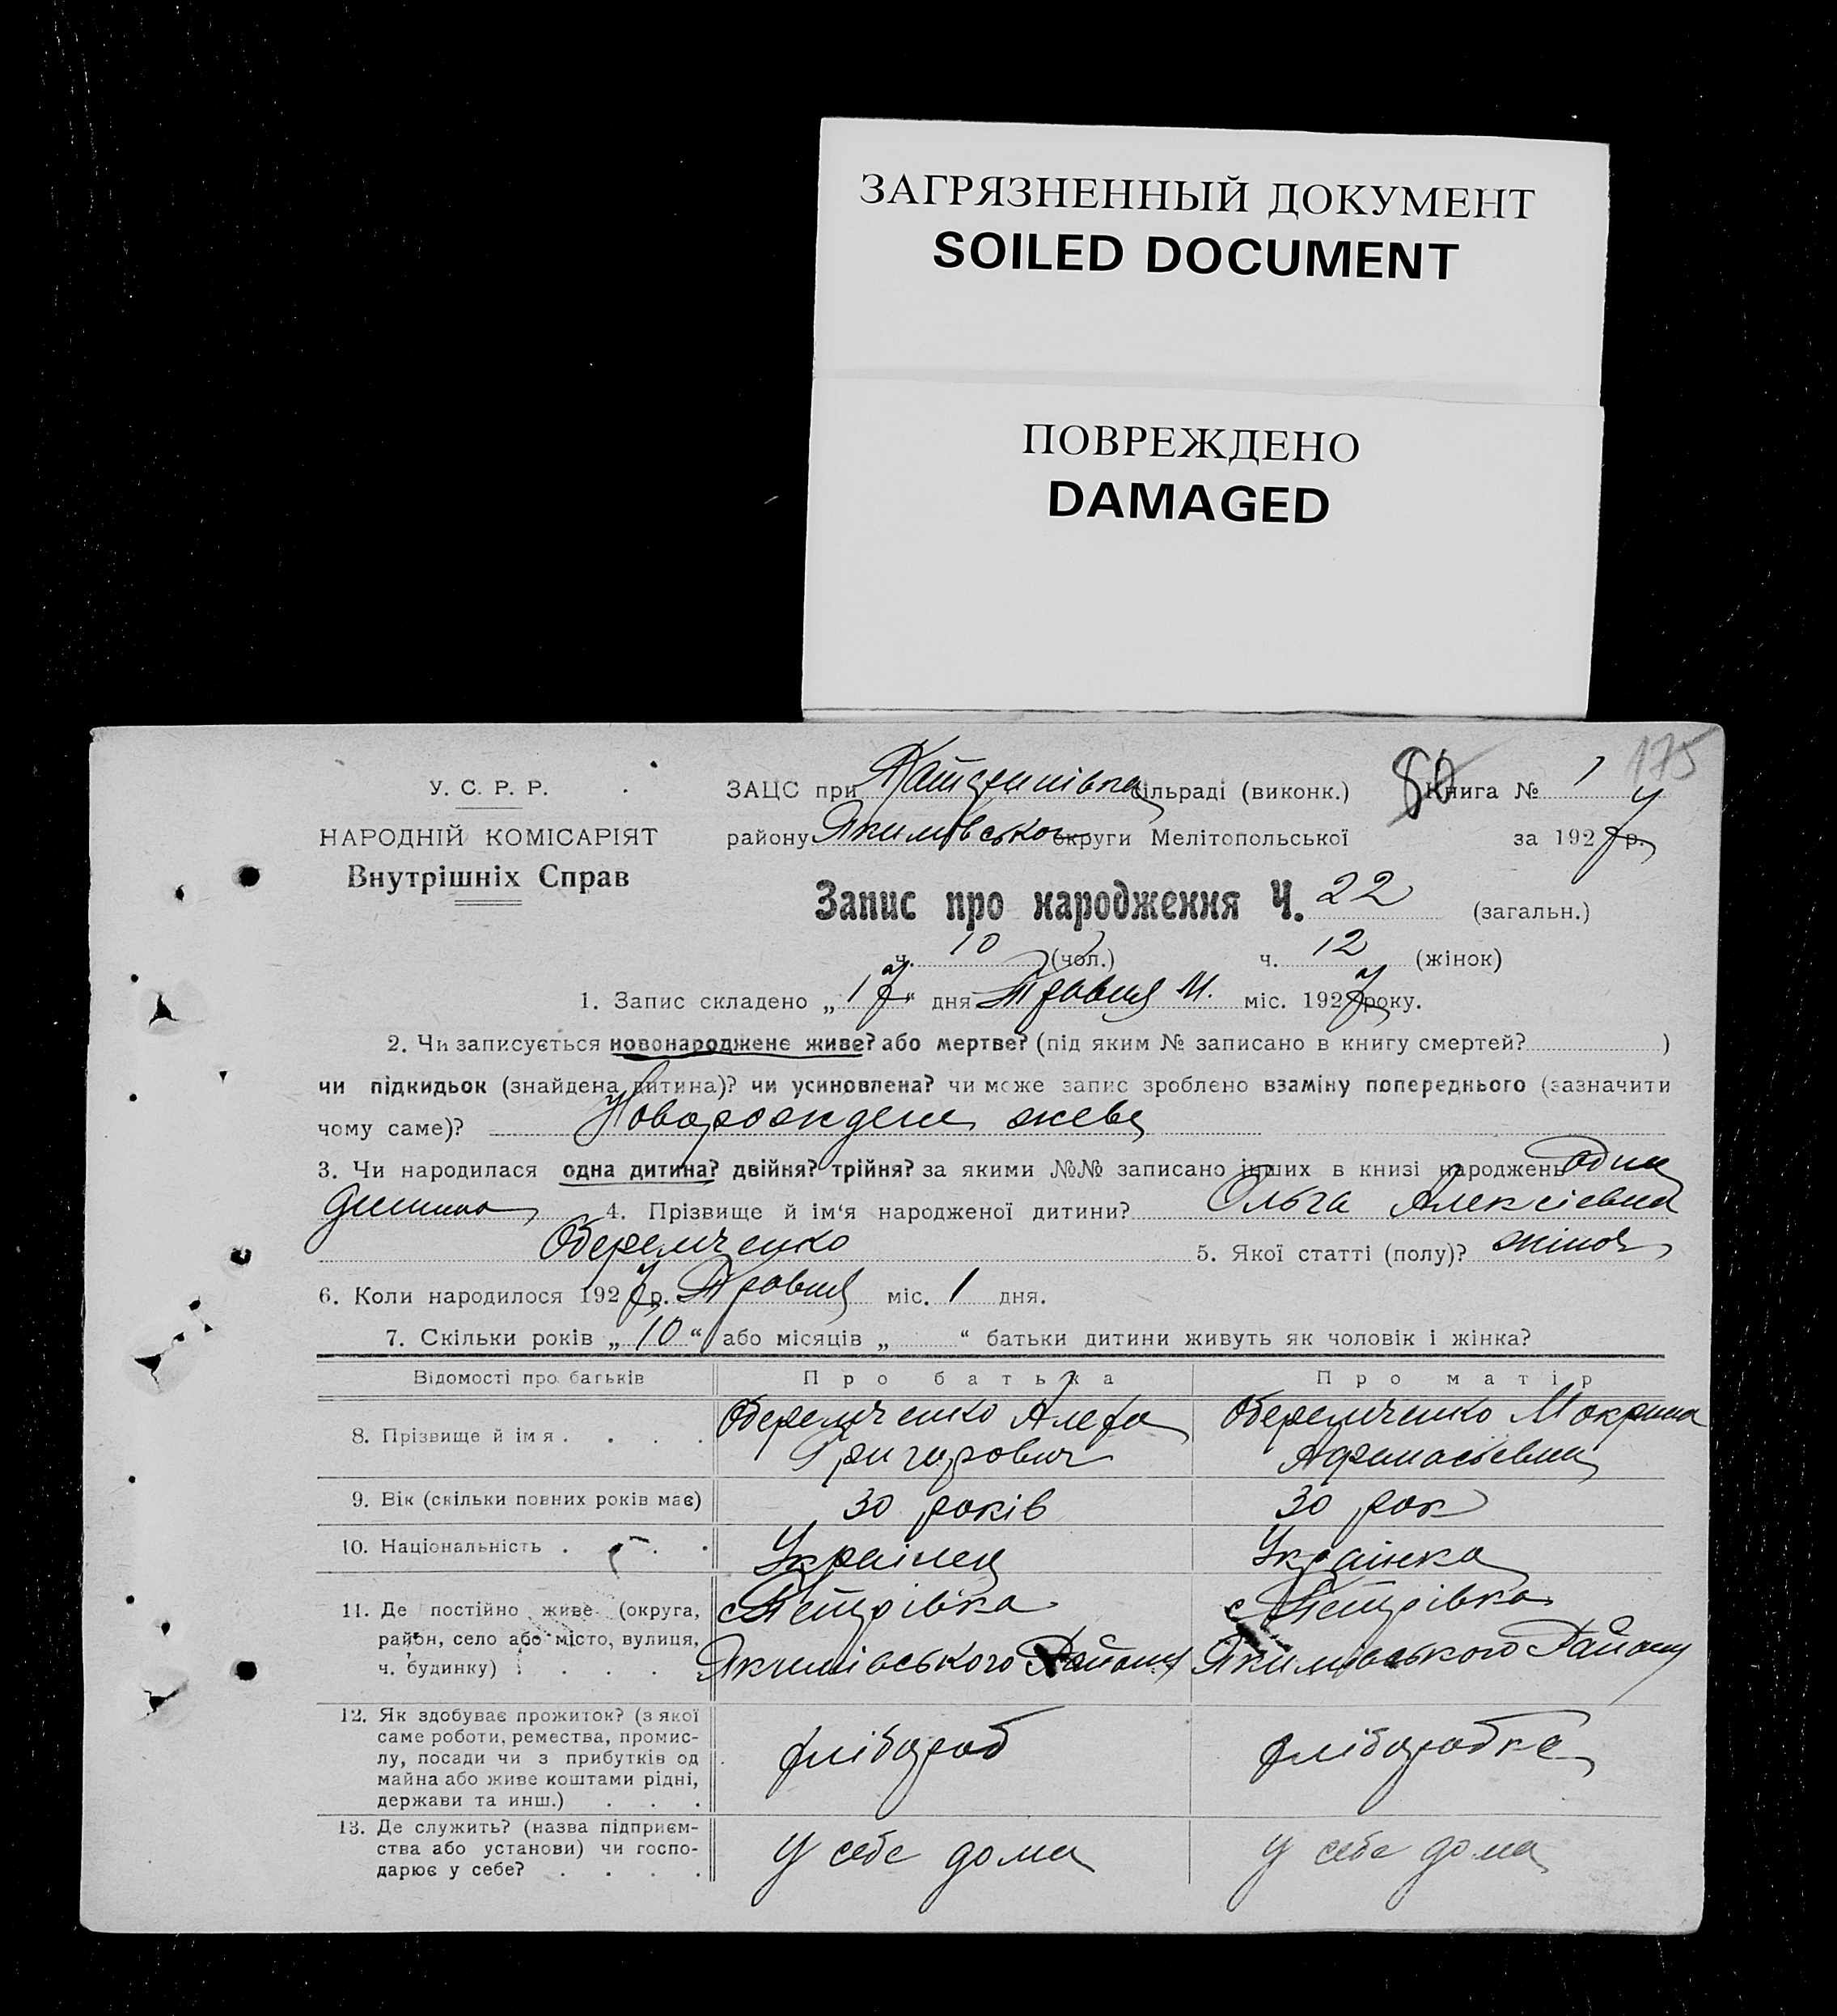 ЗАГРЯЗНЕННЫЙ ДОКУМЕНТ
SOILED DOCUMENT
ПОВРЕЖДЕНО
DAMAGED
175
У. С. Р. Р.
НАРОДНІЙ КОМІСАРІЯТ
Внутрішніх Справ
ЗАЦС при сільраді (виконк.) Книга № 1
району Якимівського округи Мелітопольської за 1927 р.
Запис про народження Ч. 22 (загальн.)
ч. 10 (чол.) ч. 12 (жінок)
1. Запис складено „17“ дня Травня М. міс. 1927 року.
2. Чи записується новонароджене живе? або мертве? (під яким № записано в книгу смертей? )
чи підкидьок (знайдена дитина)? чи усиновлена? чи може запис зроблено взаміну попереднього (зазначити
чому саме)? Новорожденн живе
3. Чи народилася одна дитина? двійня? трійня? за якими №№ записано інших в книзі народжень одна
дитина 4. Прізвище й ім'я народженої дитини? Ольга Алексієвна
Оберемченко 5. Якої статті (полу)? жіноч
6. Коли народилося 1927 р. Травня міс. 1 дня.
7. Скільки років „10“ або місяців „ “ батьки дитини живуть як чоловік і жінка?
Відомості про батьків Про батька Про матір
8. Прізвище й імя . . . . Оберемченко Григорович Оберемченко Мокрина Афанасьевна
9. Вік (скільки повних років має) 30 років 30 рок
10. Національність . . . . Украінец Украінка
11. Де постійно живе (округа, с Петрівка с Петрівка
район, село або місто, вулиця,
ч. будинку) . . . . Якимівського Району Якимівського Району
12. Як здобуває прожиток? (з якої
саме роботи, ремества, промис-
лу, посади чи з прибутків од хлібороб хліборобка
майна або живе коштами рідні,
держави та инш.) . . .
13. Де служить? (назва підприєм-
ства або установи) чи госпо- У себе дома У себе дома
дарює у себе? . . . .